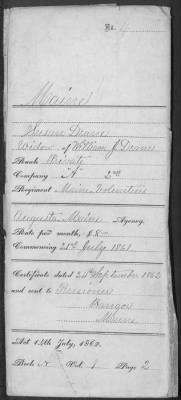 No. 4
Maine
Susan Deane
Widow of William J. Deane
Rank Private
Company "A" 2nd
Regiment Maine Volunteers
Augusta Maine Agency.
Rate per month, $8.00
Commencing 21st July 1861
Certificate dated 24 September 1862
and sent to Pensioner
Bangor
Maine
Act 14th July, 1862.
Book N Vol. 1 Page 2